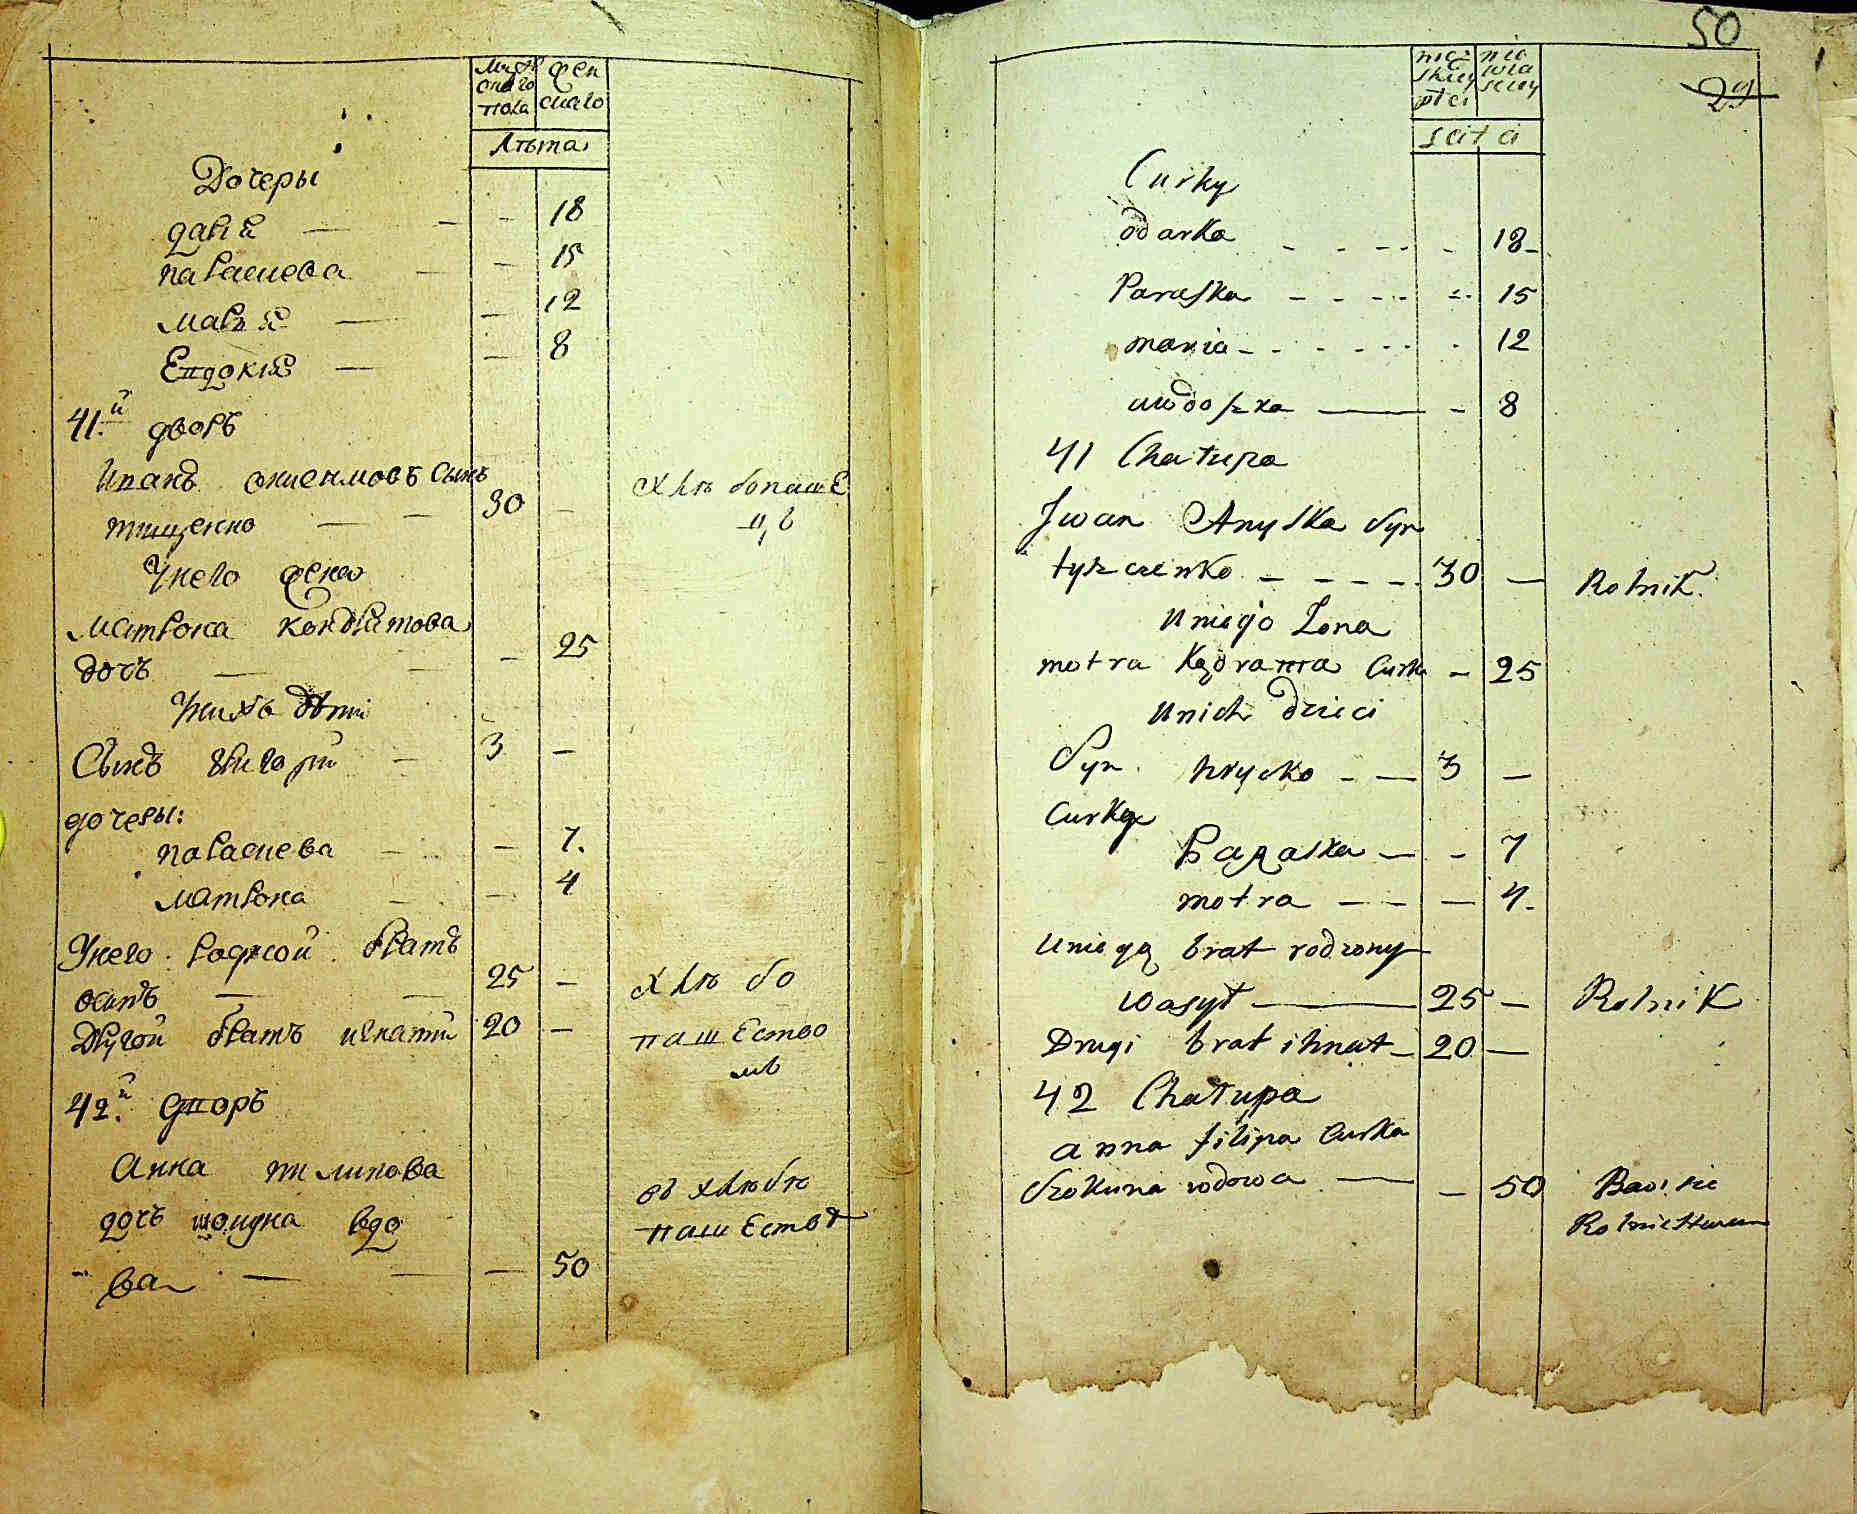 Мужескаго пола
женскаго
Лѣта
Дочеры
дарія — — — 18
параскева — — 15
марія — — 12
Евдокія — — 8
41.й дворъ
Иванъ онисимовъ сынъ
тищенко — — 30 —
хлѣбопашецъ
Унего жена
матрона кондратова
дочъ — — — 25
Унихъ дѣти
Сынъ григорій — 3 —
дочеры:
параскева — — 7.
матрона — — 4
Унего родной братъ
осипъ — — 25 —
Другой братъ игнатій 20 —
хлѣбо
пашество
мъ
42.й дворъ
Анна филипова
дочъ шокуна вдо
ва — — — 50
въ хлѣбо
пашествѣ
50
29
męskiey płci
niewiasciey
Lata
Curky
Odarka - - - - - 18 -
Paraska - - - - - 15
maria - - - - - - 12
uwdoszka — - 8
41 Chatupa
Jwan Anyska Syn
tyszczenko - - - - 30 — Rolnik.
Uniego Zona
motra Kądrata Curka - 25
Unich dzieci
Syn hrycko - — 3 —
Curky
Paraska — - 7
motra — - — 4.
Uniego brat rodzony
wasył — 25 — Rolnik
Drugi brat ihnat - 20 —
42 Chatupa
anna filipa Curka
Szokuna wdowa — - 50
Rolnictwem